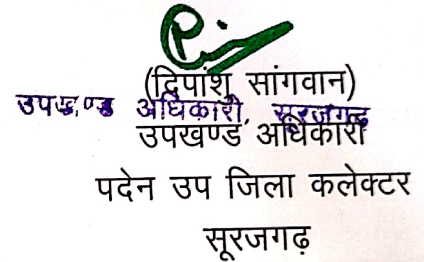 (द्विपांशु सांगवान)
उपखण्ड अधिकारी, सूरजगढ
उपखण्ड अधिकारी
पदेन उप जिला कलेक्टर
सूरजगढ़